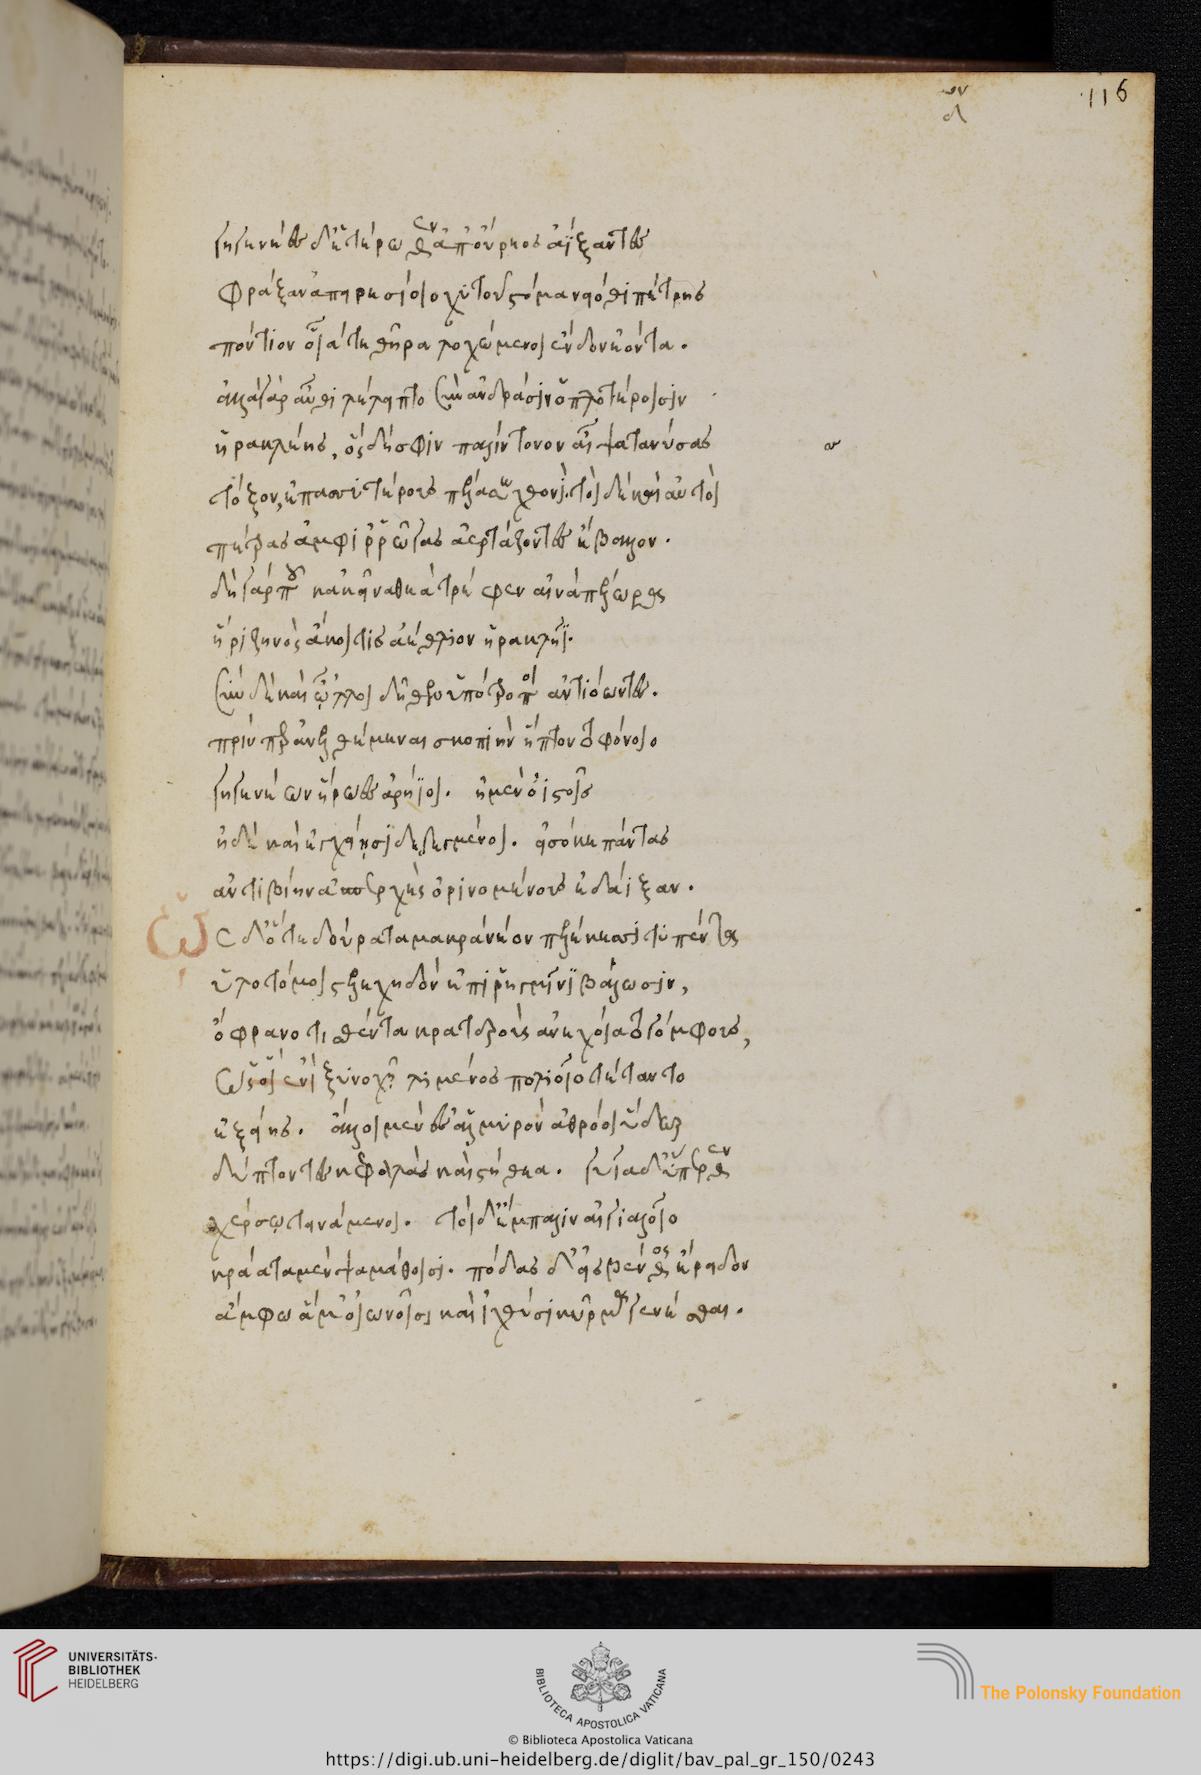 ων
δ
116
γηγενέες δ' ἑτέρωθεν ἀπ' οὔρεος ἀΐξαντες
φράξαν ἀπειρεσίοιο χυτοῦ στόμα νειόθι πέτρης
πόντιον οἷά τε θῆρα λοχώμενοι ἔνδον ἐόντα.
ἀλλὰ γὰρ αὖθι λέλειπτο σὺν ἀνδράσιν ὁπλοτέροισιν
ἡρακλέης, ὃς δή σφιν παλίντονον αἶψα τανύσας
τόξον, ἐπασσυτέρους πέλασε χθονί. τοὶ δὲ καὶ αὐτοὶ
πέτρας ἀμφιρρῶγας ἀερτάζοντες ἔβαλλον.
δὴ γάρ που κἀκεῖνα θεὰ τρέφεν αἰνὰ πέλωρα
ἥρη ζηνὸς ἄκοιτις ἀέθλιον ἡρακλῆϊ.
σὺν δὲ καὶ ὧλλοι δῆθεν ὑπότροποι ἀντιόωντες.
πρίν περ ἀνελθέμεναι σκοπιὴν ἥπτοντο φόνοιο
γηγενέων ἥρωες ἀρήϊοι. ἠμὲν ὀιστοῖς
ἠδὲ καὶ ἐγχείῃσι δεδεγμένοι. εἰσόκε πάντας
ἀντιβίην ἀσπερχὲς ὀρινομένους ἐδάιξαν.
ὣς δ' ὅτε δούρατα μακρὰ νέον πελέκεσσι τυπέντα
ὑλοτόμοι στοιχηδὸν ἐπὶ ῥηγμῖνι βάλωσιν,
ὄφρα νοτισθέντα κρατεροὺς ἀνεχοίατο γόμφους,
ὣς οἱ ἐνὶ ξυνοχῇ λιμένος πολιοῖο τέταντο
ἑξείης. ἄλλοι μὲν ἐς ἁλμυρὸν ἀθρόοι ὕδωρ
δύπτοντες κεφαλὰς καὶ στήθεα. γυῖα δ' ὕπερθεν
χέρσῳ τεινάμενοι. τοὶ δ' ἔμπαλιν αἰγιαλοῖο
κράατα μὲν ψαμάθοισι. πόδας δ' εἰς βένθος ἔρειδον
ἄμφω ἅμ' οἰωνοῖσι καὶ ἰχθύσι κύρμα γενέσθαι.
UNIVERSITÄTS-
BIBLIOTHEK
HEIDELBERG
BIBLIOTECA APOSTOLICA VATICANA
The Polonsky Foundation
© Biblioteca Apostolica Vaticana
https://digi.ub.uni-heidelberg.de/diglit/bav_pal_gr_150/0243